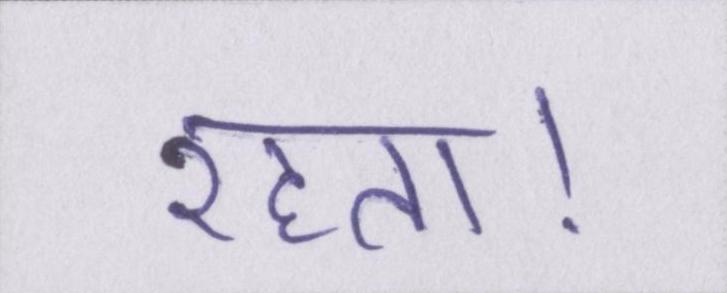 रहता!